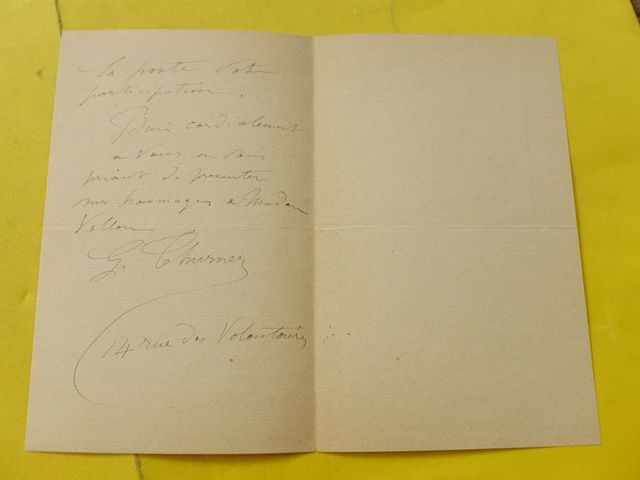 la poste votre
participation.
cordialement
a vous en vous
priant de presenter
mes hommages a Madame
Vollon
G. Thurner
14 rue des Volontaires